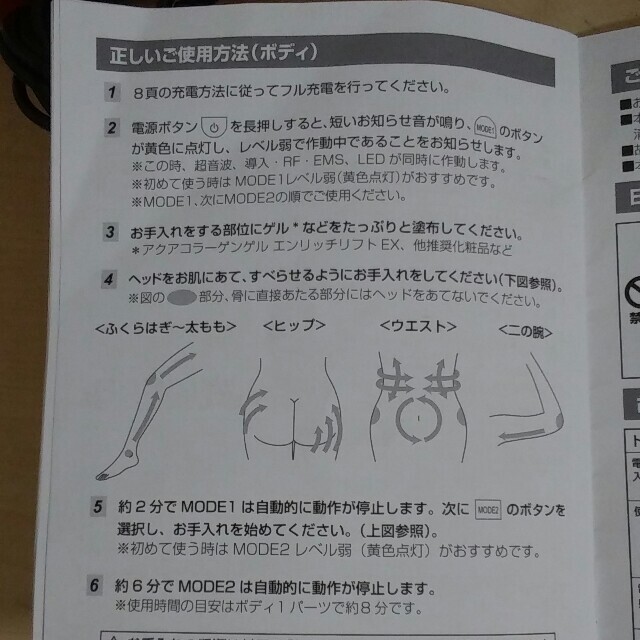 正しいご使用方法(ボディ)
1 8頁の充電方法に従ってフル充電を行ってください。
2 電源ボタン を長押しすると、短いお知らせ音が鳴り、MODE1 のボタン
が黄色に点灯し、レベル弱で作動中であることをお知らせします。
※この時、超音波、導入・RF・EMS、LED が同時に作動します。
※初めて使う時は MODE1レベル弱(黄色点灯)がおすすめです。
※MODE1、次にMODE2の順でご使用ください。
3 お手入れをする部位にゲル*などをたっぷりと塗布してください。
*アクアコラーゲンゲル エンリッチリフト EX、他推奨化粧品など
4 ヘッドをお肌にあて、すべらせるようにお手入れをしてください(下図参照)。
※図の 部分、骨に直接あたる部分にはヘッドをあてないでください。
<ふくらはぎ〜太もも> <ヒップ> <ウエスト> <二の腕>
5 約2分で MODE1 は自動的に動作が停止します。次に MODE2 のボタンを
選択し、お手入れを始めてください。(上図参照)。
※初めて使う時は MODE2 レベル弱(黄色点灯)がおすすめです。
6 約6分で MODE2 は自動的に動作が停止します。
※使用時間の目安はボディ1パーツで約8分です。
ご
■お
■本
■お
■本
禁